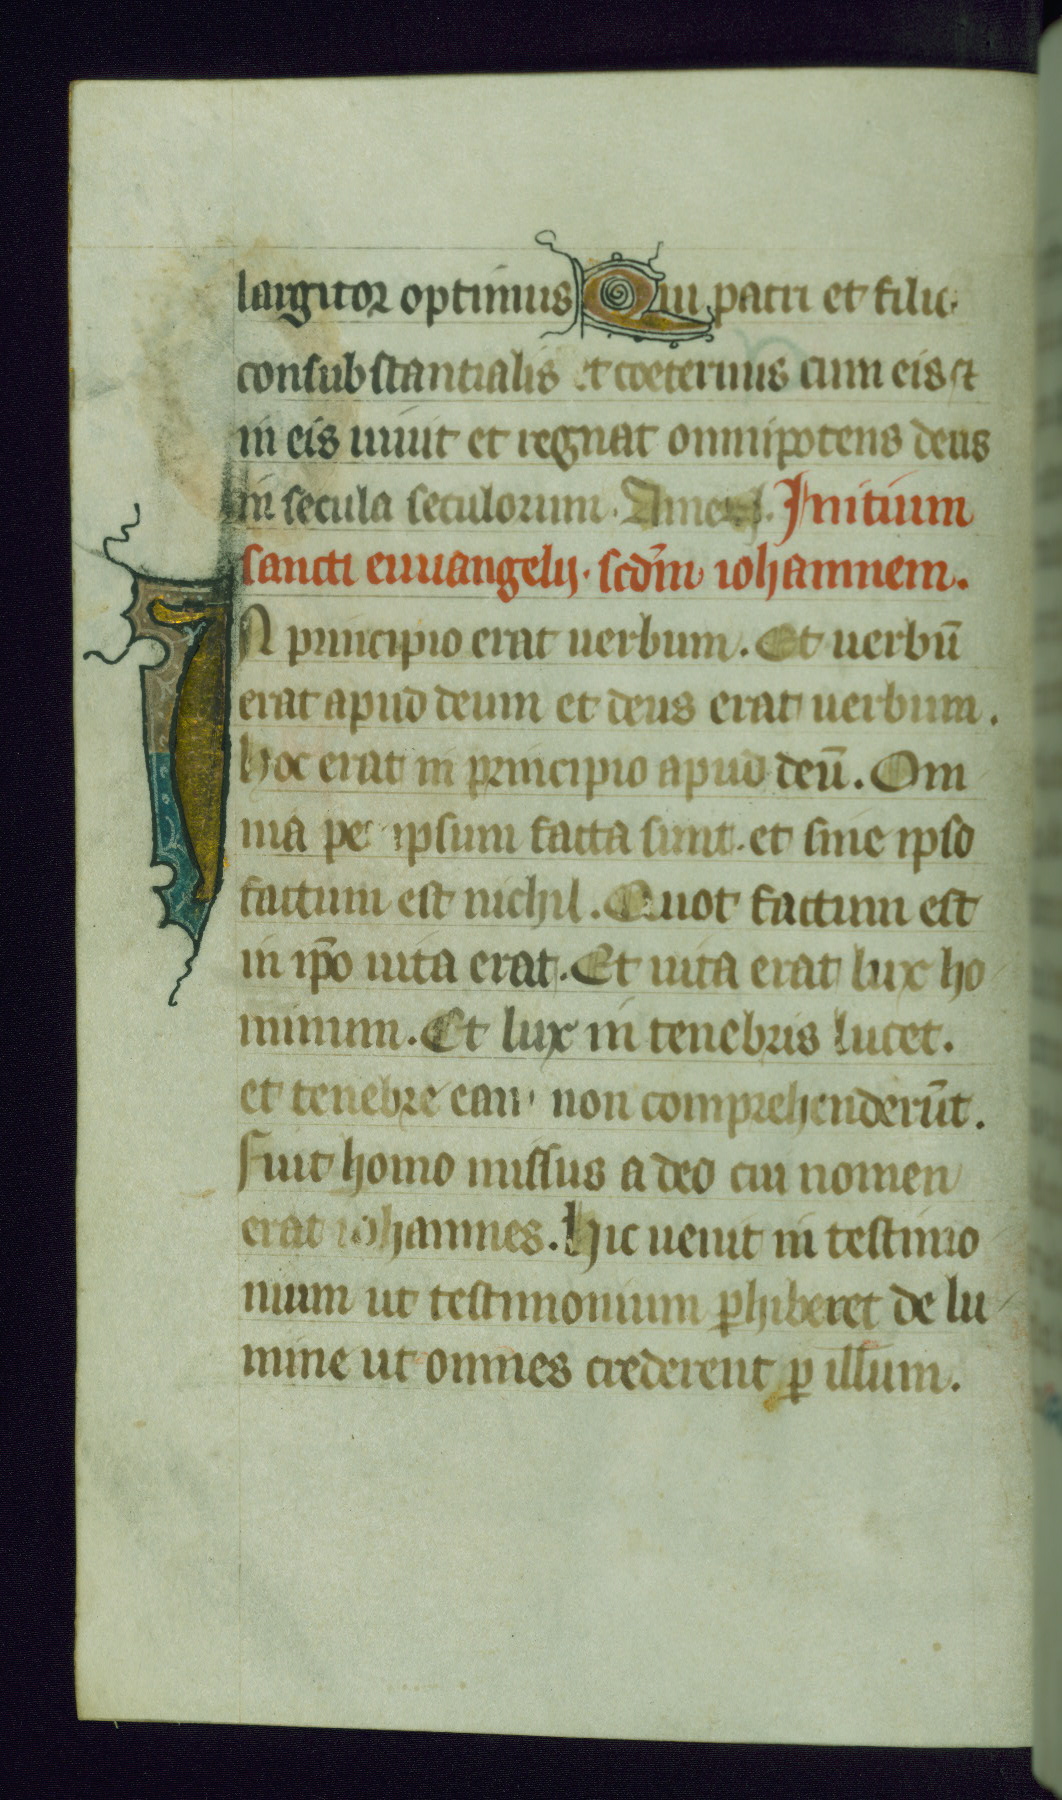 largitor optimus Qui patri et filio
consubstantialis et coeternus cum eis et
in eis uiuit et regnat omnipotens deus
in secula seculorum. Amen. Initium
sancti euuangelij. scd̄m iohannem.
IN principio erat uerbum. Et uerbū
erat apud deum et deus erat uerbum.
hoc erat in principio apud deū. Om
nia per ipsum facta sunt. et sine ipso
factum est nichil. Quot factum est
in ip̄o uita erat. Et uita erat lux ho
minum. Et lux in tenebris lucet.
et tenebre eam non comprehenderūt.
Fuit homo missus a deo cui nomen
erat iohannes. hic uenit in testimo
nium ut testimonium ꝑhiberet de lu
mine ut omnes crederent ꝑ illum.